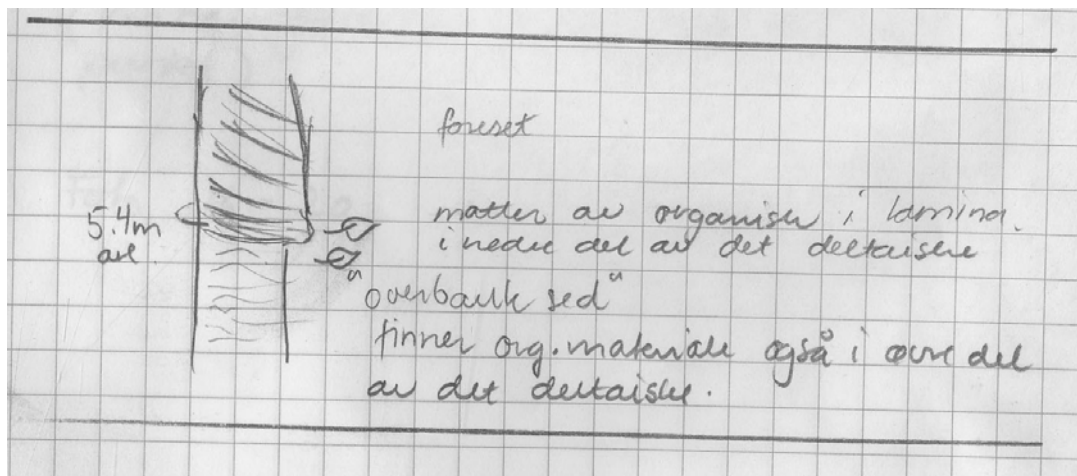 foreset
5.4m
avl.
matter av organisk i lamina.
i nedre del av det deltaiske
"overbank sed"
finner org. materiale også i øvre del
av det deltaiske.